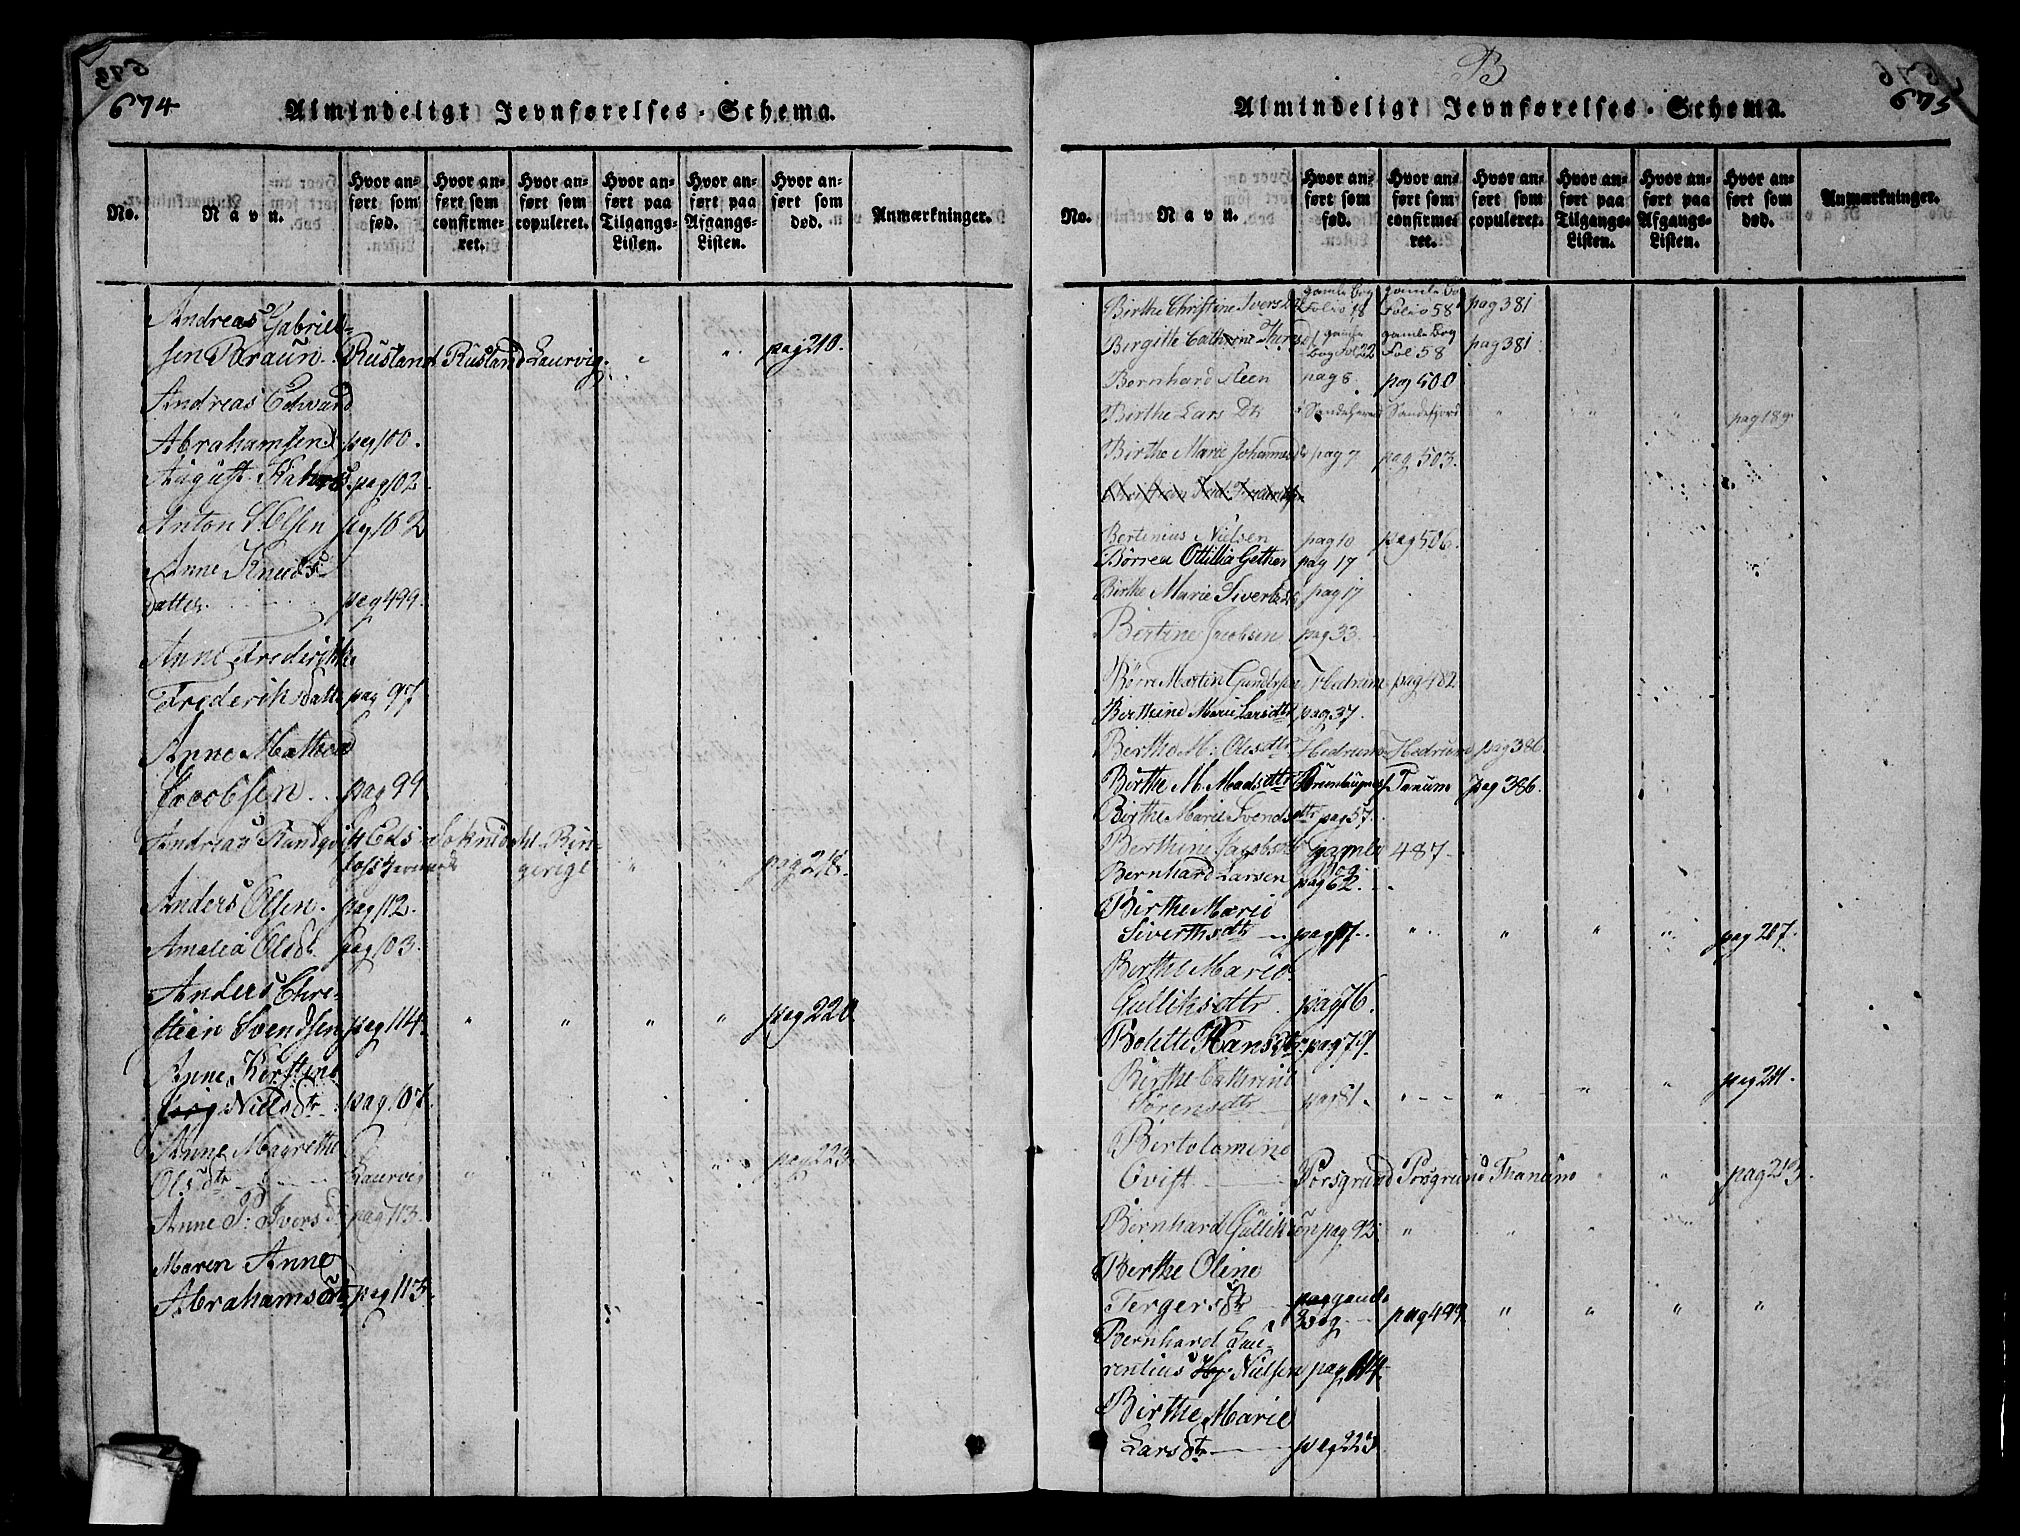 674
Almindeligt Jevnførelses-Schema.
No. Navn. Hvor anført som fød. Hvor anført som confirmeret. Hvor anført som copuleret. Hvor anført paa Tilgangs-Listen. Hvor anført paa Afgangs-Listen. Hvor anført som død. Anmærkninger.
Andreas Gabriel-
sen Paraun Rusland Rusland Laurvig " " pag 210.
Andreas Edvard
Abrahamsen pag 100.
August pag 102.
Anton Olsen pag 102
Anne Knuds
datter pag 499.
Anne Frederikke
Frederiksdatter pag 97
Anne Mathea
Jacobsen pag 99
Andreas Eds- Soknedahl Rin-
gerige " pag 218.
Anders Olsen. pag 112.
Amalia Olsdtr pag 103.
Anders Chri-
stian Svendsen pag 114. " " " " pag 220
Anne Kirstine
Nielsdtr pag 107.
Anne Magrethe
Olsdtr Laurvig " " " " pag 223
Anne P: Iversdtr pag 113.
Maren Anne
Abrahamsdtr pag 113.
B
675
Almindeligt Jevnførelses-Schema.
No. Navn. Hvor anført som fød. Hvor anført som confirmeret. Hvor anført som copuleret. Hvor anført paa Tilgangs-Listen. Hvor anført paa Afgangs-Listen. Hvor anført som død. Anmærkninger.
gamle Bog gamle Bo
Birthe Christine Iversdtr Folio 18 Folio 58 pag 381
gamle gamle Bog
Birgitte Cathrine Bog Fol 22 Fol 58 pag 381
Bernhard Steen pag 8 pag 500
Birthe Lars Dtr Sandefjord " " " pag 189
Birthe Marie Johannesdtr pag 7 pag 503.
Bertinius Nielsen pag 10 pag 506.
Børrea Ottillia Gether pag 17
Birthe Marie Siverts pag 17
Bertine Jacobsen pag 33.
Børre Martin Gundersen Hedrum pag 482
Berthine Marie Larsdtr pag 37.
Berthe M: Olesdtr Hedrum Hedrum pag 386
Birthe M. Madsdtr Tanum pag 386.
Birthe Marie Svendsdtr pag 57.
Berthine Jacobsdtr gamle 487.
Bernhard Larsen pag 62.
Birthe Marie
Siverthsdtr pag 17. " " " " pag 207.
Birthe Marie
Gulliksdtr. pag 76.
Bolette Hansdtr. pag 79.
Birthe Cathrine
Sørensdtr pag 81. " " " " pag 211.
Bertolamine
Qvist Porsgrund Porsgrund Thanum " " pag 213.
Bernhard Gulliksen pag 93. " " "
Berthe Oline
Tergersdtr gamle
Bog pag 499 " " " "
Bernhard Lau-
rentius Nielsen pag 114.
Birthe Marie
Larsdtr pag 223.